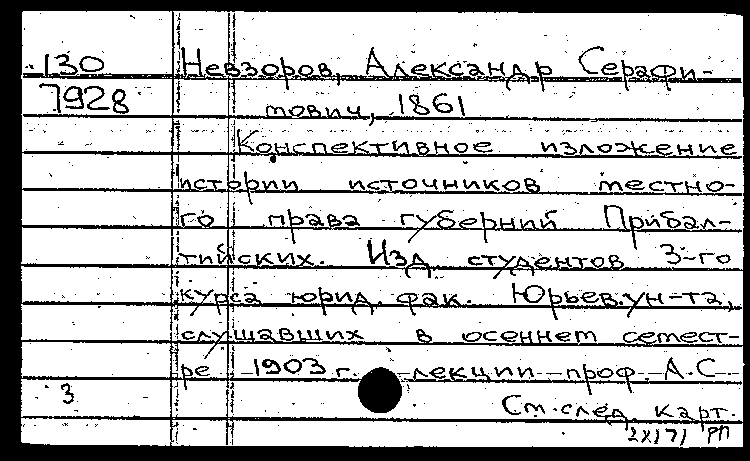 130 Невзоров, Александр Серафи-
7928 мович, 1861
Конспективное изложение
истории источников местно-
го права губерний Прибал-
тийских. Изд студентов 3-го
курса юрид. фак. Юрьев. ун-та,
слушавших в осеннем семест-
ре 1903 г. лекции проф. А.С
3
См. след. карт.
2X171 РП